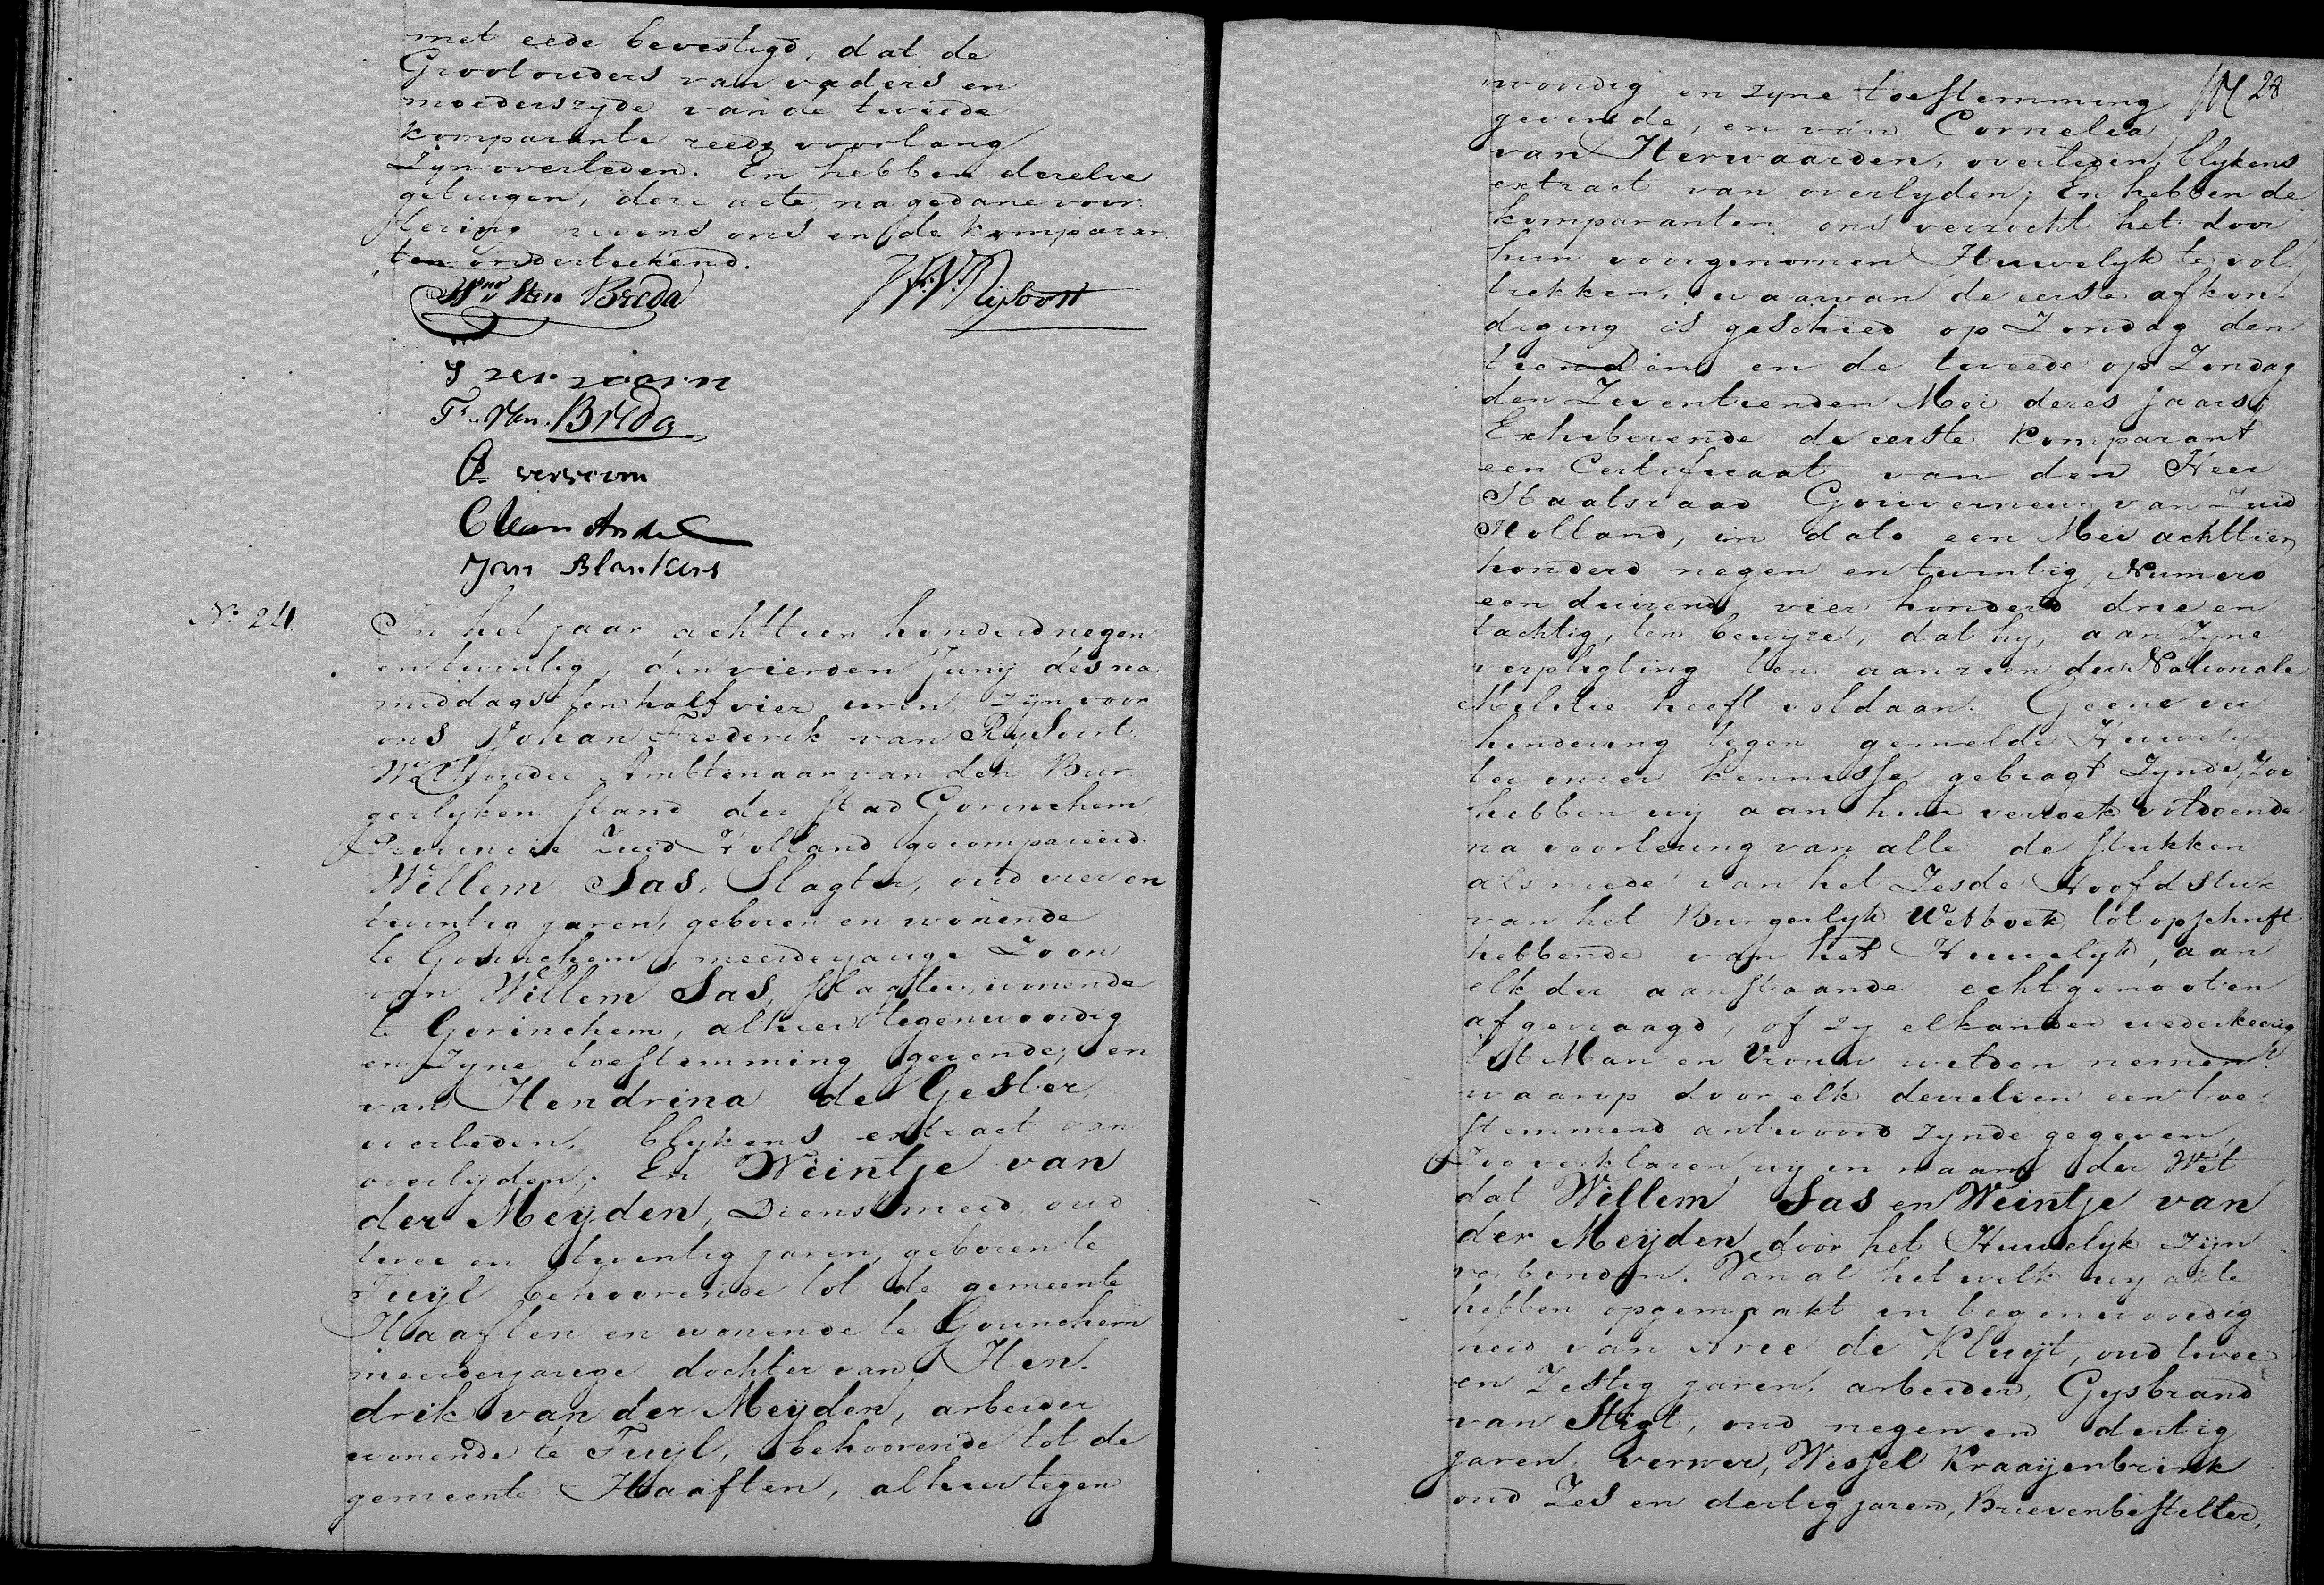 met eede bevestigd, dat de
Grootouders van vaders en
moederszyde van de tweede
komparante reeds voorlang
Zijn overleden. En hebben derelve
getuigen, deze acte, na gedane voor
lezing nevens ons en de komparan
ten onderteekend.
Breda
Fr. Van Breda
C Van Andel
Jan Blankers
No. 24.
In het jaar achttien honderd negen
en twintig, den vierden Junij des na
middags ten half vier uren, zijn voor
ons Johan Frederik van Rysoort
Wethouder Ambtenaar van den Bur
gerlyken stand der stad Gorinchem,
Provincie Zuid Holland gecompareerd
Willem Sas, Slagter, oud vier en
twintig jaren, geboren en wonende
te Gorinchem, meerderjarige Zoon
van Willem Sas, slagter, wonende
te Gorinchem, alhier tegenwoordig
en Zyne toestemming gevende, en
van Hendrina de Gester,
overleden, blykens extract van
overlyden; En Weintje van
der Meijden, Dienstmeid, oud
twee en twintig jaren, geboren te
Tuijl behoorende tot de gemeente
Haaften en wonende te Gorinchem
meerderjarige dochter van Hen-
drik van der Meijden, arbeider
wonende te Tuijl, behoorende tot de
gemeente Haaften, alhier tegen
woordig en zyne toestemming 28
gevende, en van Cornelia
van Herwaarden, overleden, blykens
extract van overlyden; En hebben de
komparanten ons verzocht het door
hun voorgenomen Huwelyk te vol
trekken, waarvan de eerste afkon-
diging is geschied op Zondag den
tienden en de tweede op Zondag
den Zeventienden Mei dezes jaars;
Exhiberende de eerste komparant
een Certificaat van den Heer
Staatsraad Gouverneur van Zuid
Holland, in dato een Mei achttien
honderd negen en twintig, Numero
een duizend vier honderd drie en
tachtig, ten bewyze, dat hy, aan Zyne
verpligting ten aanzien der Nationale
Militie heeft voldaan. Geene ver
hindering tegen gemelde Huwelyk
ter onzer kennisse gebragt Zynde, Zoo
hebben wy aan hun verzoek voldoende
na voorlezing van alle de stukken
als mede van het Zesde Hoofdstuk
van het Burgerlyk Wetboek, tot opschrift
hebbende van het Huwelyk, aan
elk der aanstaande echtgenooten
afgevraagd, of zy elkander wederkeerig
tot Man en Vrouw wilden nemen?
waarop door elk derzelven een toe-
stemmend antwoord zynde gegeven,
Zoo verklaren wy in naam der Wet
dat Willem Sas en Weintje van
der Meijden door het Huwelijk zijn
verbonden. Van al het welk wy akte
hebben opgemaakt in tegenwoordig
heid van Arie de Kluijt, oud twee
en Zestig jaren, arbeider, Gysbrand
van Stigt, oud negen en dertig
jaren, verwer, Wessel Kraaijenbrink
oud Zes en dertig jaren, Brievenbesteller,